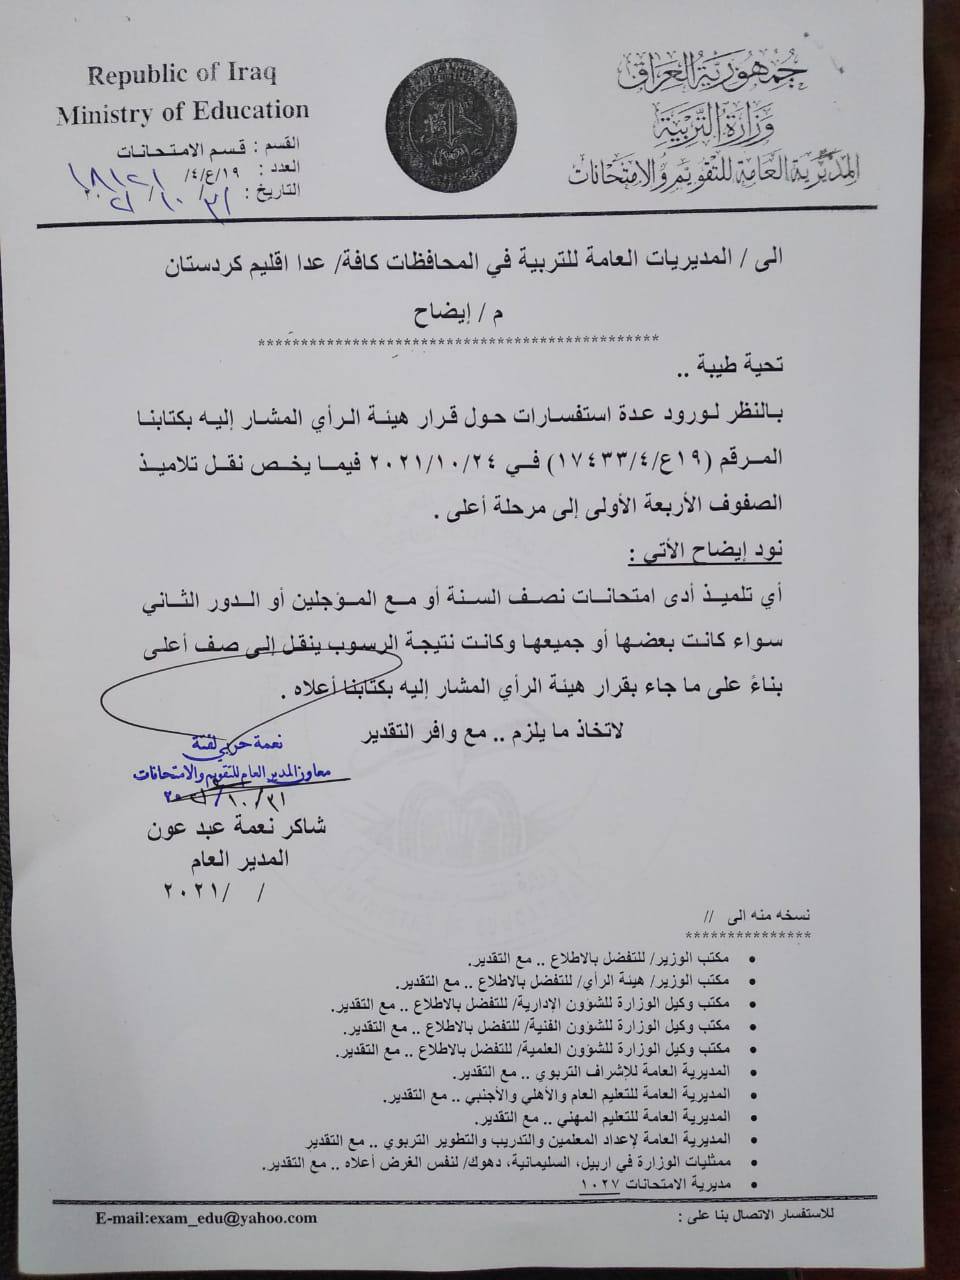 Republic of Iraq
Ministry of Education
جمهورية العراق
وزارة التربية
المديرية العامة للتقويم والامتحانات
القسم : قسم الامتحانات
العدد : ١٩/ع/٤/
التاريخ : ٣١/١٠/
الى / المديريات العامة للتربية في المحافظات كافة/ عدا اقليم كردستان
م / إيضاح
***********************************************
تحية طيبة ..
بالنظر لورود عدة استفسارات حول قرار هيئة الرأي المشار إليه بكتابنا
المرقم (١٩ع/٤/١٧٤٣٣) في ٢٠٢١/١٠/٢٤ فيما يخص نقل تلاميذ
الصفوف الأربعة الأولى إلى مرحلة أعلى .
نود إيضاح الأتي :
أي تلميذ أدى امتحانات نصف السنة أو مع المؤجلين أو الدور الثاني
سواء كانت بعضها أو جميعها وكانت نتيجة الرسوب ينقل إلى صف أعلى
بناءً على ما جاء بقرار هيئة الرأي المشار إليه بكتابنا أعلاه .
لاتخاذ ما يلزم .. مع وافر التقدير
نعمة حربي لفتة
معاون المدير العام للتقويم والامتحانات
٣١/١٠/
شاكر نعمة عبد عون
المدير العام
/ /٢٠٢١
نسخه منه الى //
***************
• مكتب الوزير/ للتفضل بالاطلاع .. مع التقدير.
• مكتب الوزير/ هيئة الرأي/ للتفضل بالاطلاع .. مع التقدير.
• مكتب وكيل الوزارة للشؤون الإدارية/ للتفضل بالاطلاع .. مع التقدير.
• مكتب وكيل الوزارة للشؤون الفنية/ للتفضل بالاطلاع .. مع التقدير.
• مكتب وكيل الوزارة للشؤون العلمية/ للتفضل بالاطلاع .. مع التقدير.
• المديرية العامة للإشراف التربوي .. مع التقدير.
• المديرية العامة للتعليم العام والأهلي والأجنبي .. مع التقدير.
• المديرية العامة للتعليم المهني .. مع التقدير.
• المديرية العامة لإعداد المعلمين والتدريب والتطوير التربوي .. مع التقدير
• ممثليات الوزارة في اربيل، السليمانية، دهوك/ لنفس الغرض أعلاه .. مع التقدير.
• مديرية الامتحانات ١٠٢٧
للاستفسار الاتصال بنا على :
E-mail:exam_edu@yahoo.com